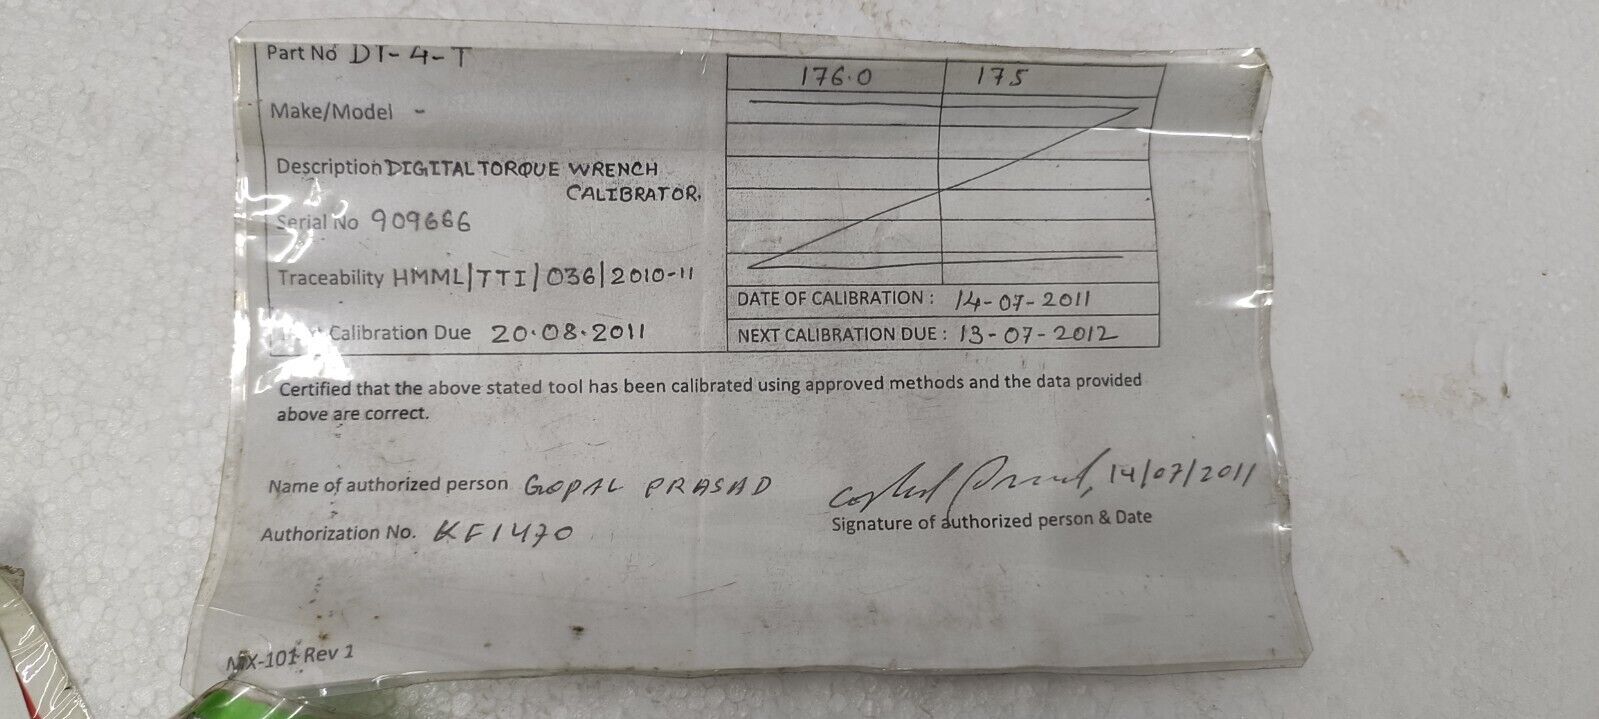 Part No DT-4-T
176.0 175
Make/Model -
Description DIGITAL TORQUE WRENCH
CALIBRATOR.
Serial No 909666
Traceability HMML/TTI/036/2010-11
Calibration Due 20.08.2011
DATE OF CALIBRATION : 14-07-2011
NEXT CALIBRATION DUE : 13-07-2012
Certified that the above stated tool has been calibrated using approved methods and the data provided
above are correct.
Name of authorized person GOPAL PRASAD
14/07/2011
Authorization No. KF1470
Signature of authorized person & Date
MX-101 Rev 1